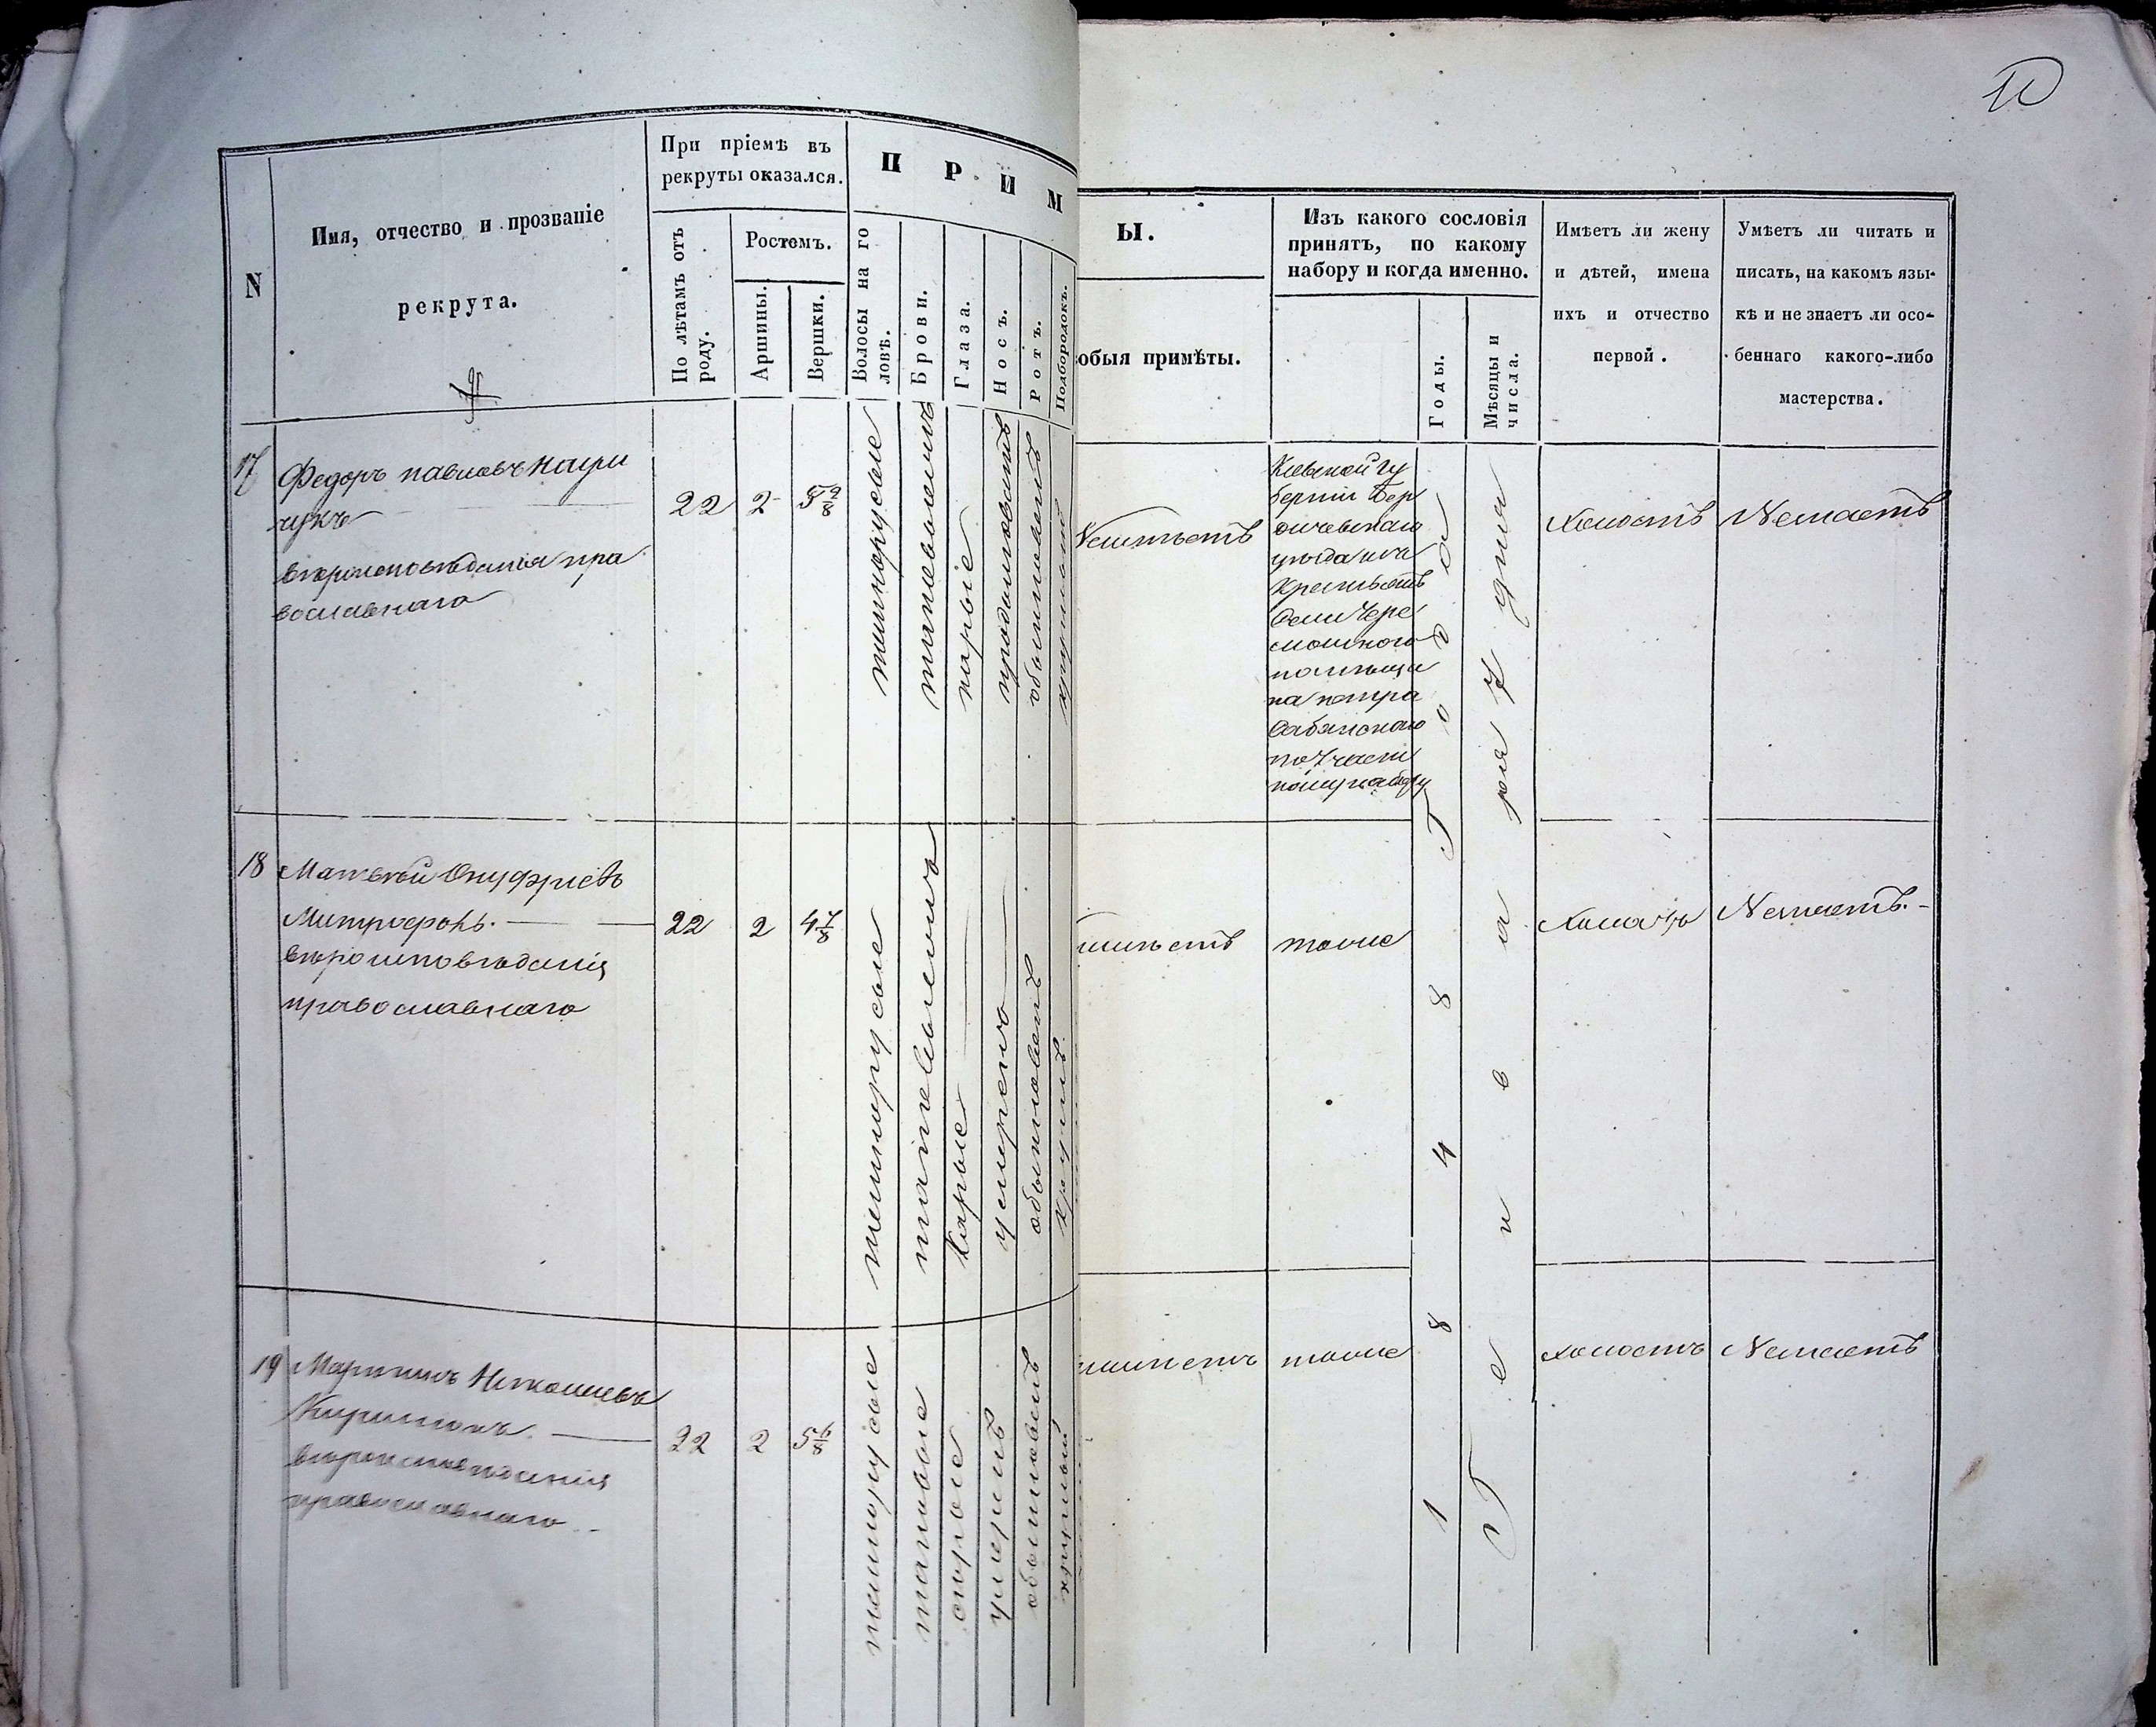 11
N
Имя, отчество и прозваніе
рекрута.
При пріемѣ въ
рекруты оказался.
По лѣтамъ отъ
роду.
Ростомъ.
Аршины.
Вершки.
П Р И М
Волосы на го
ловѣ.
Брови.
Глаза.
Носъ.
Ротъ.
Подбородокъ.
Ы.
обыя примѣты.
Изъ какого сословія
принятъ, по какому
набору и когда именно.
Годы.
Мѣсяцы и
числа.
Имѣетъ ли жену
и дѣтей, имена
ихъ и отчество
первой.
Умѣетъ ли читать и
писать, на какомъ язы-
кѣ и не знаетъ ли осо-
беннаго какого-либо
мастерства.
17
Федоръ павловъ
вѣроисповѣданія пра
вославнаго
22
2
5 2/8
темнорусые
карые
продолговатъ
обыкновенъ
Неимѣетъ
Кіевской гу
берніи Бер
дичевскаго
уѣзда изъ
крестьянъ
Сели Чере
мошного
помѣщи
ка петра
Собанскаго
по 7 части
ному набору
1848 Года
Генваря 7 дня
Холостъ
Неумѣетъ
18
Матвѣй Онуфріевъ
Митрофанъ.
вѣроисповѣданія
православнаго
22
2
4 7/8
темнорусые
Карые
умѣренъ
обыкновенъ
круглъ
имѣетъ
тоже
Холостъ
Неумѣетъ.
19
Мартинъ
вѣроисповѣданія
православнаго
22
2
5 6/8
темнорусые
таковые
сѣрые
умѣренъ
обыкновенъ
круглый
имѣетъ
тоже
холостъ
Неумѣетъ